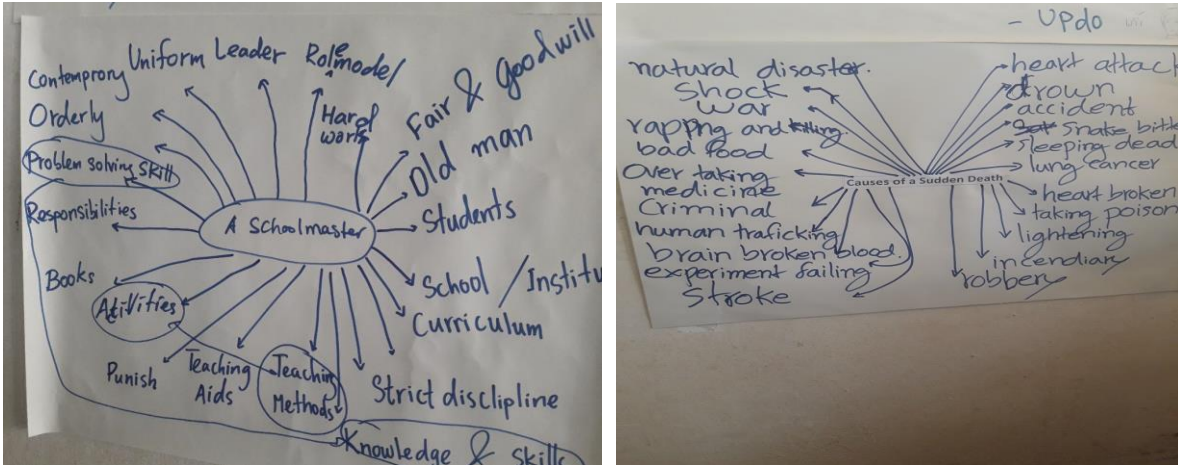 Contemprory
Uniform
Leader
Role model
Orderly
Hard
work
Fair & Goodwill
Problem solving skill
Old man
Responsibilities
A Schoolmaster
Students
Books
School / Institu
Activities
Curriculum
Punish
Teaching
Aids
Teaching
Methods
Strict disclipline
Knowledge & skills
- UPdo
natural disaster.
shock
war
rappng and killing.
bad food
Over taking
medicine
Criminal
human traficking
brain broken blood.
experiment failing
Stroke
Causes of a Sudden Death
heart attack
drown
accident
snake bitte
sleeping dead
lung cancer
heart broken
taking poison
lightening
incendiary
robbery